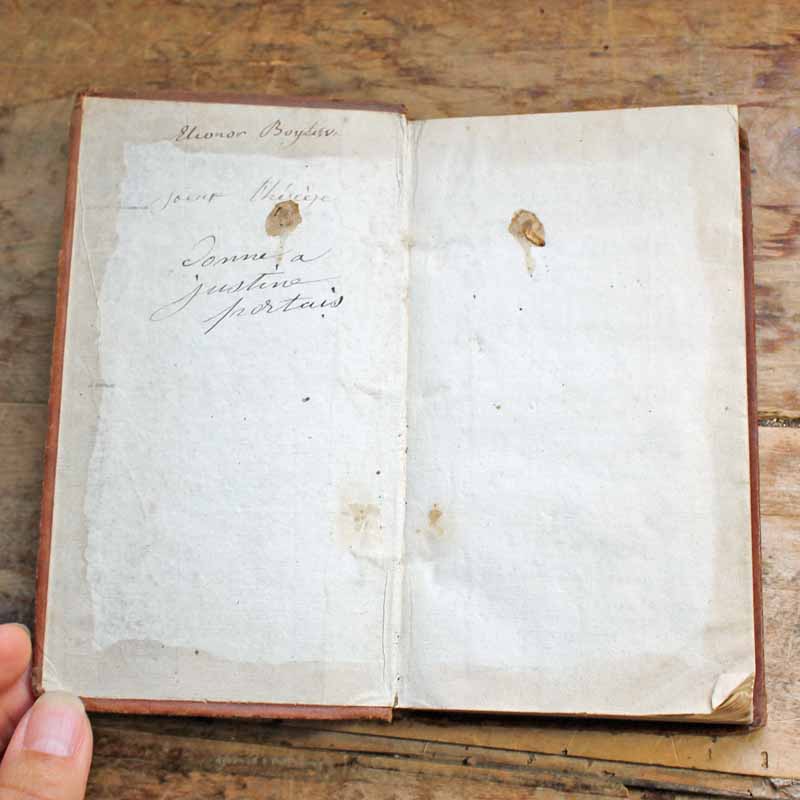 Eleonor
soeur Thérèse
donné a
justine
portais